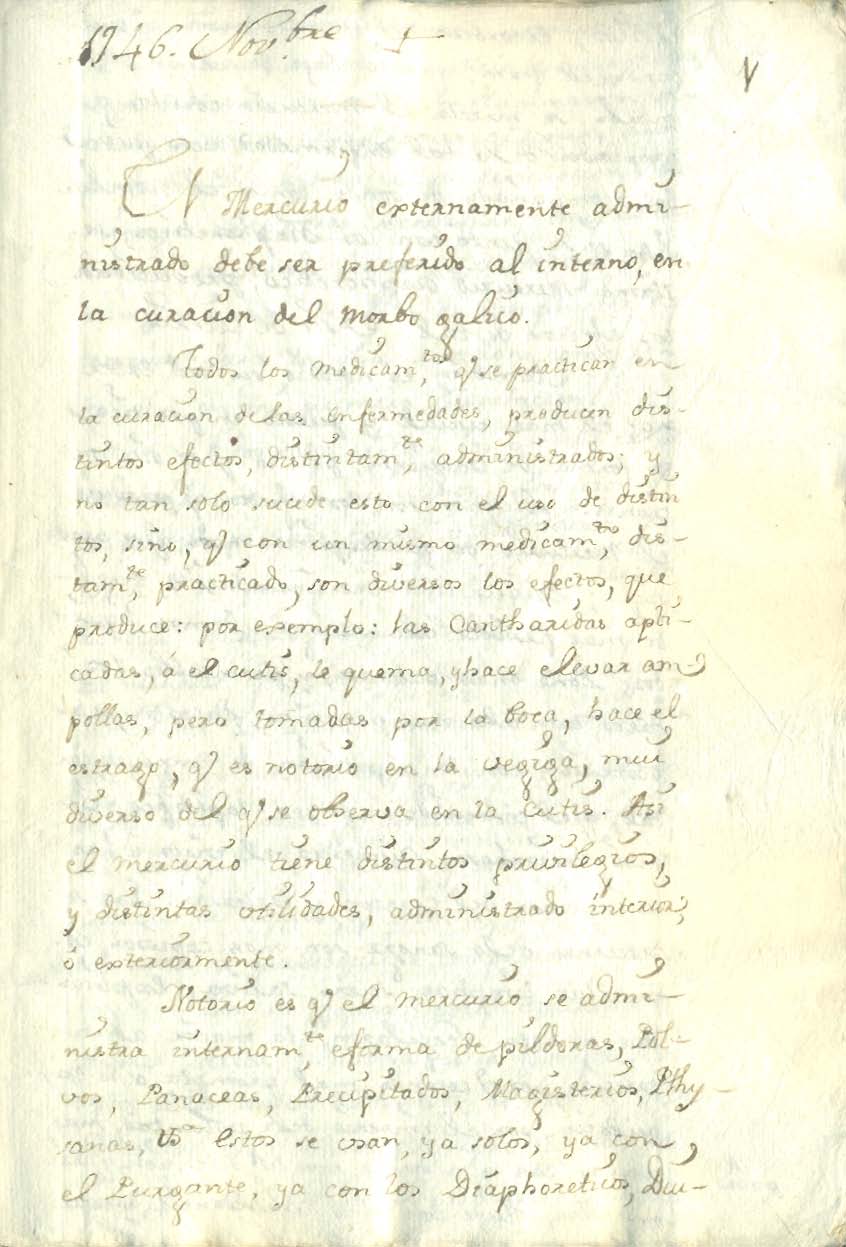 1746. Nov.bre +
V
El Mercurio externamente admi-
nistrado debe ser preferido al interno, en
la curacion del Morbo galico.
Todos los Medicam,tos q se practican en
la curacion de las enfermedades, producen dis-
tintos efectos, distintam,te administrados; y
no tan solo sucede esto con el uso de distin
tos, sino, q con un mismo medicam,to dis-
tam,te practicado, son diversos los efectos, que
produce: por exemplo: las Cantharidas apli-
cadas, á el cutis, le quema, y hace elevar am-
pollas, pero tomadas por la boca, hace el
estrago, q es notorio en la vegiga, mui
diverso del q se observa en la Cutis. Asi
el mercurio tiene distintos privilegios,
y distintas utilidades, administrado interior,
ó exteriormente.
Notorio es q el Mercurio se admi-
nistra internam,te eforma de pildoras, Pol-
vos, Panaceas, Precipitados, Magisterios, Pthy-
sanas, Estos se usan, ya solos, ya con
el Purgante, ya con los Diaphoreticos, Diu-